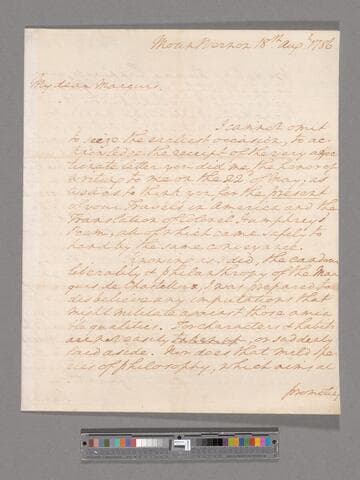 Mount Vernon 18th Augt 1786
My dear Marquis,
I cannot omit
to seize the earliest occasion, to ac
knowledge the receipt of the very affec
tionate letter you did me the honor of
writing to me on the 22d of May; as
well as to thank you for the present
of your Travels in America and the
Translation of Colonel Humphreys
Poem, all of which came safely to
hand by the same conveyance.
Knowing as I did, the candour
liberality & philanthropy of the Mar
quis de Chatellux, I was prepared to
disbelieve any imputations that
might militate against those amia
ble qualities. For characters & habits
are not easily taken up, or suddenly
laid aside. Nor does that mild spe
cies of philosophy, which aims at
promoting